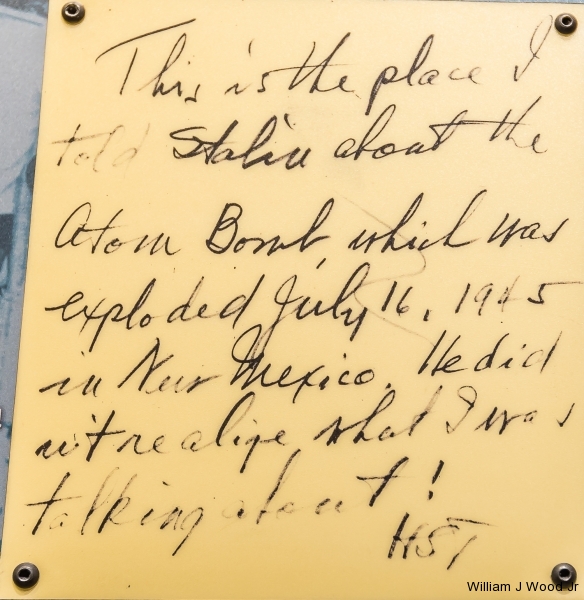 This is the place I
told Stalin about the
Atom Bomb, which was
exploded July 16, 1945
in New Mexico. He did
n't realize what I was
talking about!
HST
William J Wood Jr